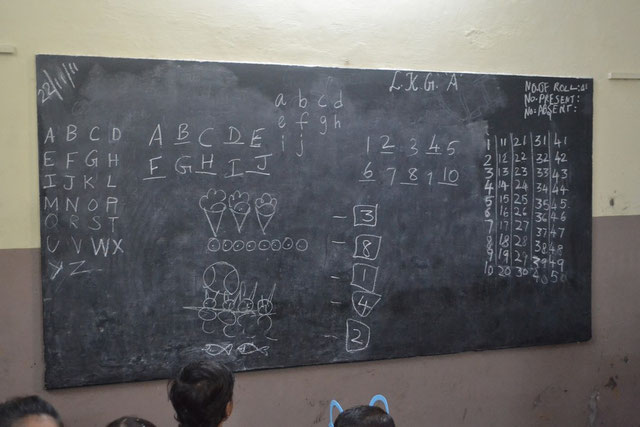 22/11/11
L.K.G. A
NO. OF ROLL: 41
No. PRESENT:
No: ABSENT:
A B C D
E F G H
I J K L
M N O P
Q R S T
U V W X
Y Z
A B C D E
F G H I J
a b c d
e f g h
i j
1 2 3 4 5
6 7 8 9 10
3
8
1
4
2
1 11 21 31 41
2 12 22 32 42
3 13 23 33 43
4 14 24 34 44
5 15 25 35 45
6 16 26 36 46
7 17 27 37 47
8 18 28 38 48
9 19 29 39 49
10 20 30 40 50